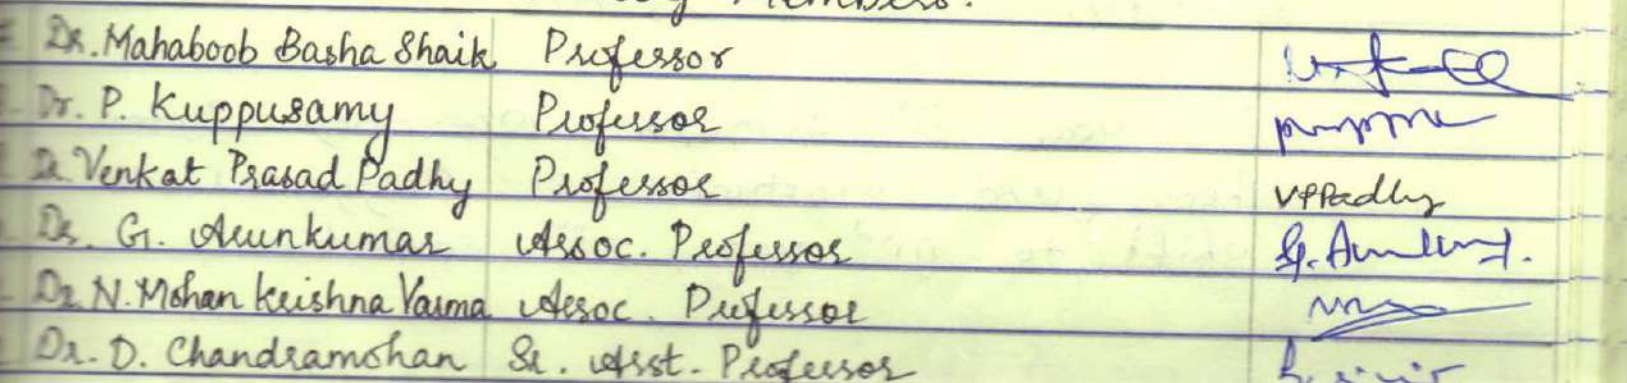 Members.
Dr. Mahaboob Basha Shaik Professor
Dr. P. Kuppusamy Professor
Dr Venkat Prasad Padhy Professor VPPadhy
Dr. G. Arunkumar Assoc. Professor
Dr N. Mohan Krishna Varma Assoc. Professor
Dr. D. Chandramohan Sr. Asst. Professor